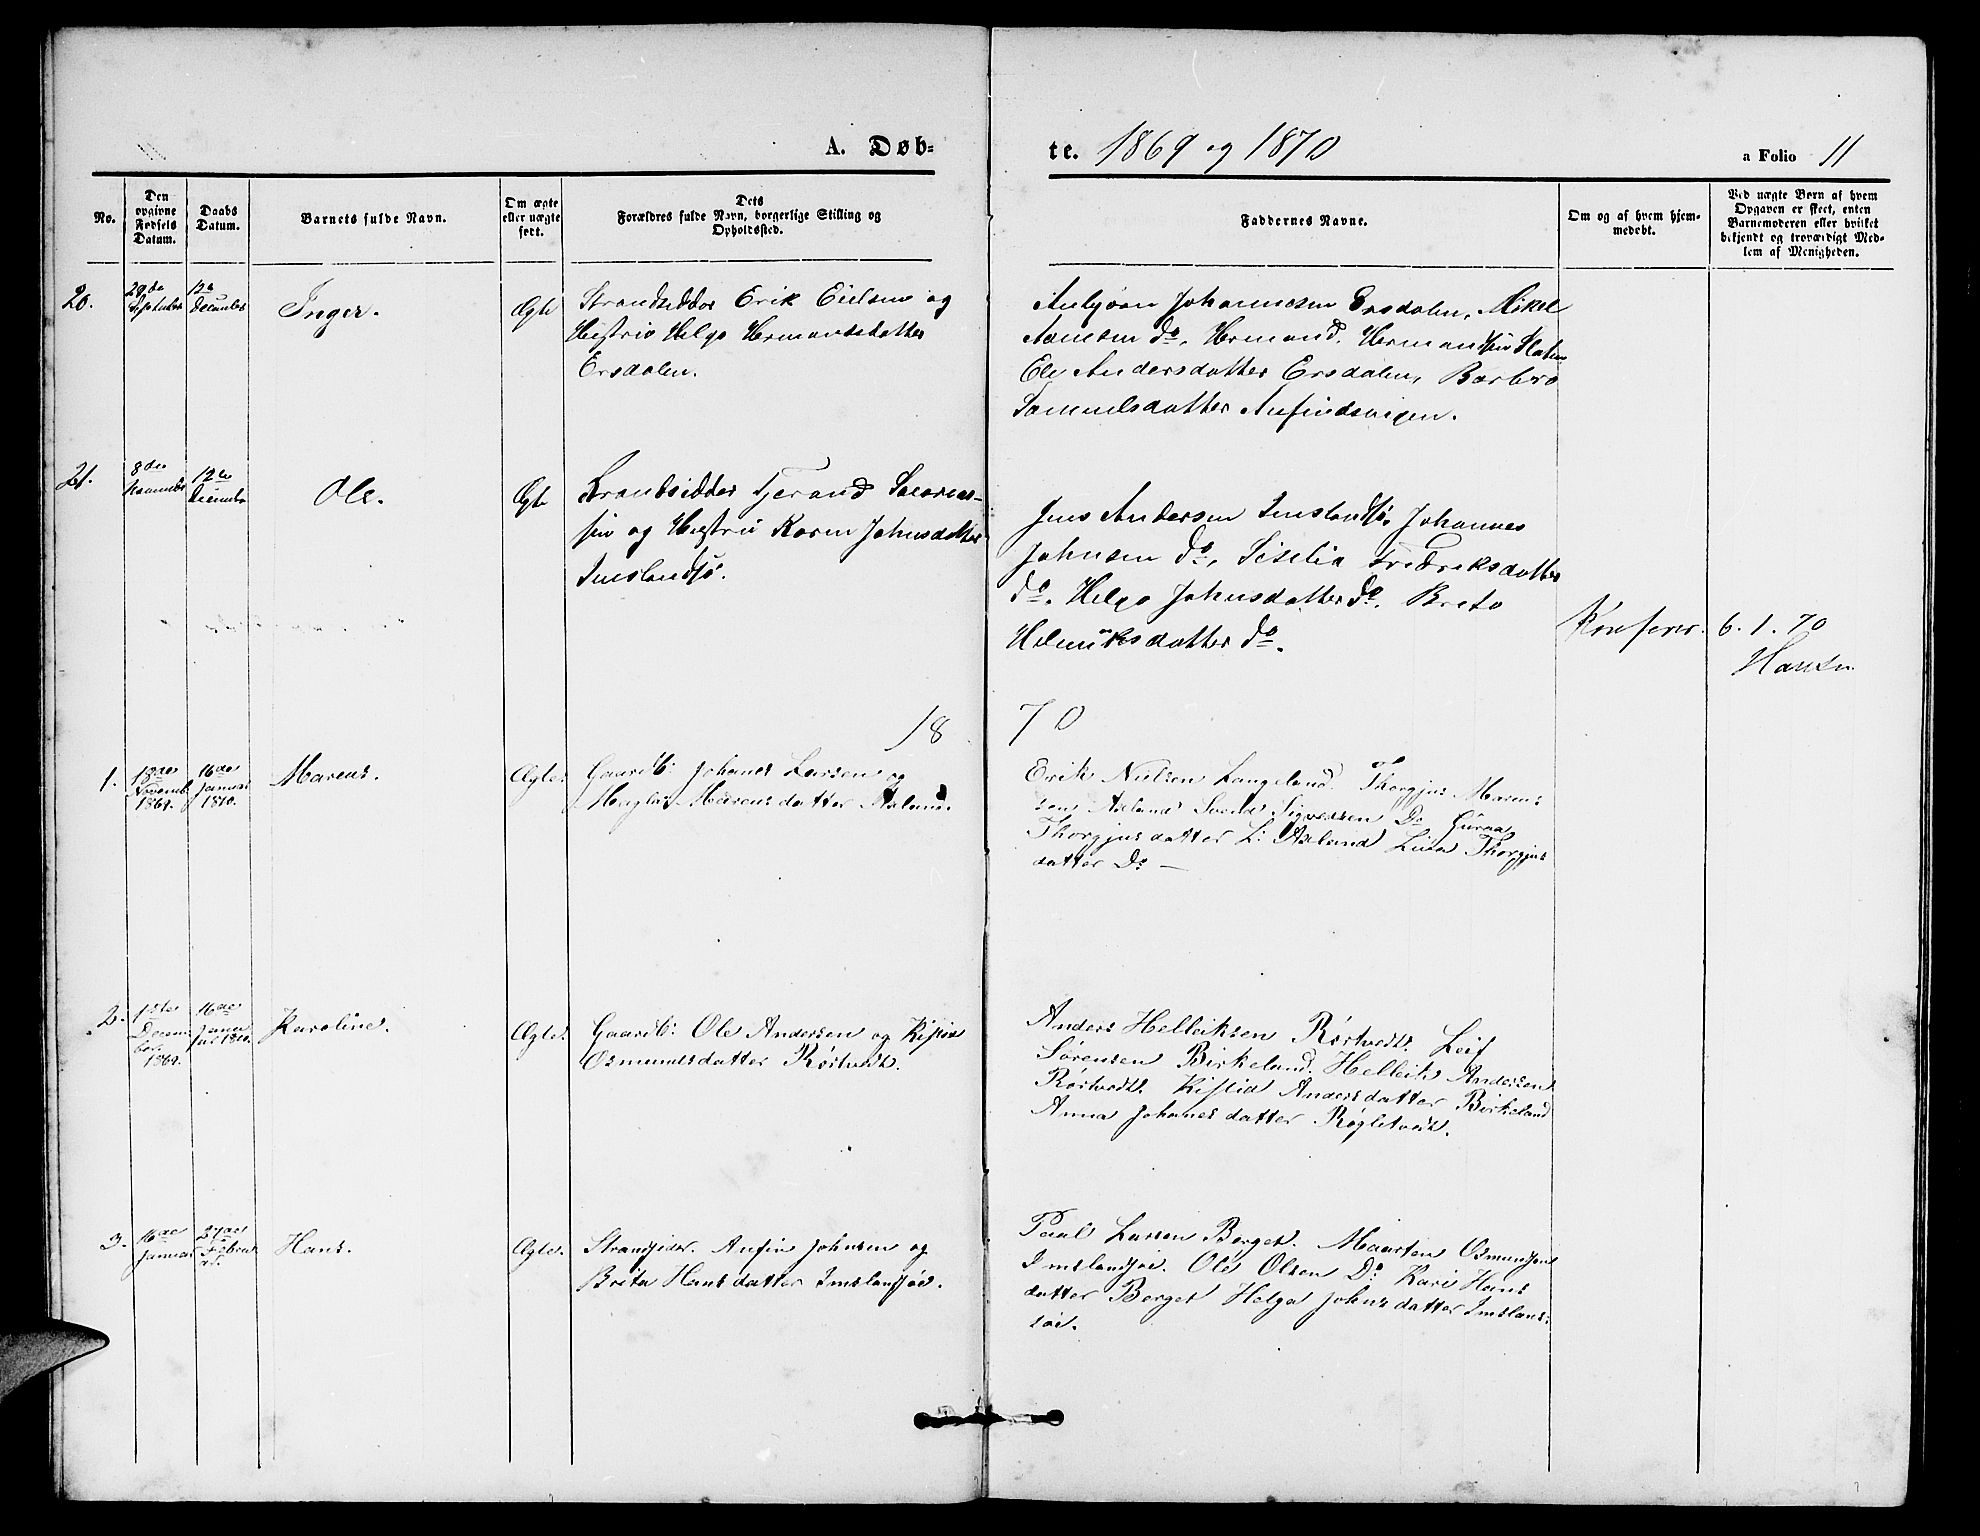 A. Døb-
te. 1869 og 1870
a Folio 11
No.
Den
opgivne
Fødsels
Datum.
Daabs
Datum.
Barnets fulde Navn.
Om ægte
eller uægte
født.
Dets
Forældres fulde Navn, borgerlige Stilling og
Opholdssted.
Faddernes Navne.
Om og af hvem hjem-
medøbt.
Ved uægte Børn af hvem
Opgaven er skeet, enten
Barnemoderen eller hvilket
bekjendt og troværdigt Med-
lem af Menigheden.
20.
29de
September
12te
December
Inger.
Ægte
Strandsidder Erik Eielsen og
Hustru Helga Hermandsdatter
Ersdalen.
Johannesen Ersdalen, Mikel
do, Hermand Hermandsen
Andersdatter Ersdalen, Barbro
Samuelsdatter Anfindsvigen.
21.
8de
November
12te
December
Ole.
Ægte
Strandsidder Tjerand
sen og Hustru Karen Johnsdatter
Imslandsjø.
Jens Andersen Imslandsjø, Johannes
Johnsen do, Siselia Fredriksdatter
do. Helga Johnsdatter do. Breta
Helmiksdatter do.
Konferer.
6.1.70
Hansen
18
70
1.
18de
Novemb.
1869.
16de
Januar
1870.
Marcus.
Ægte.
Gaardb: Johanes Larsen og
Marcusdatter Axland.
Erik Nielsen Langeland. Thorgjus Marcus
sen Axland Svend Sigvessen Do
Thorgjusdatter L: Axland Lisa Thorgjus
datter Do —
2.
1ste
Decem
ber
1869.
16de
Janu
ar 1870.
Karoline.
Ægte.
Gaardb: Ole Andersen og Kistia
Osmundsdatter Rørtvedt.
Anders Helleiksen Rørtvedt. Leif
Sørensen Birkeland. Helleik Andersen
Rørtvedt. Kistia Andersdatter Birkeland
Anna Johanesdatter Røgletvedt.
3.
16de
Januar
27de
Febru
ar.
Hans.
Ægte.
Strandsider. Anfin Johnsen og
Brita Hansdatter Imslandsjøe.
Paal Larsen Berget. Maarten Osmundsen
Imslandsjøe. Ole Olsen Do Kari Hans
datter Berget Helga Johnsdatter Imslands:
søe.